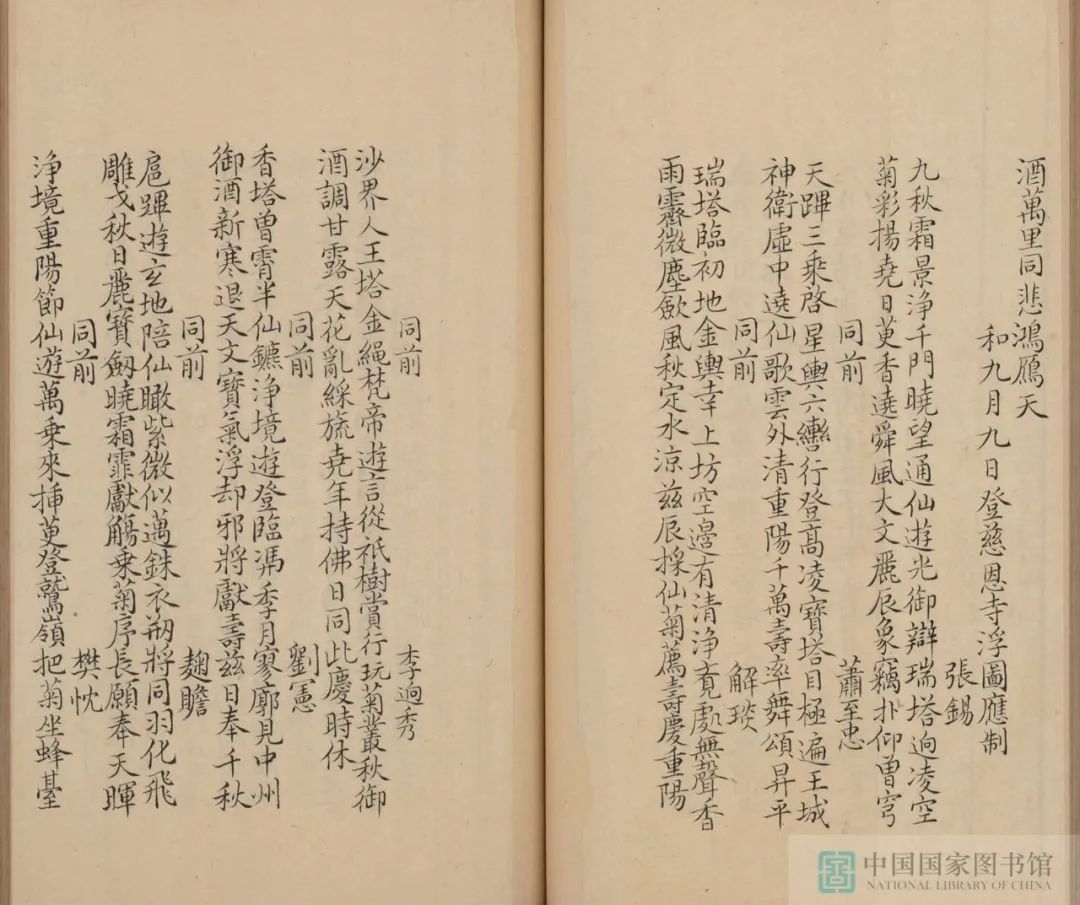 酒萬里同悲鴻鴈天
和九月九日登慈恩寺浮圖應制
張錫
九秋霜景淨千門曉望通仙遊光御辯瑞塔逈凌空
菊彩揚堯日萸香遶舜風大文麗辰象竊抃仰曽穹
同前
蕭至忠
天蹕三乗啓星輿六轡行登高凌寶塔目極遍王城
神衛虛中遶仙歌雲外清重陽千萬壽率舞頌昇平
同前
解琰
瑞塔臨初地金輿幸上坊空邊有清淨覔處無聲香
雨霽微塵歛風秋定水涼茲辰採仙菊薦壽慶重陽
同前
李逈秀
沙界人王塔金繩梵帝遊言從祇樹賞行玩菊叢秋御
酒調甘露天花亂綵旒堯年持佛日同此慶時休
同前
劉憲
香塔曽霄半仙鑣淨境遊登臨馮季月寥廓見中州
御酒新寒退天文寶氣浮却邪將獻壽茲日奉千秋
同前
麹瞻
扈蹕遊玄地陪仙瞰紫微似邁銖衣刼將同羽化飛
雕戈秋日麗寶劔曉霜霏獻觴乗菊序長願奉天暉
同前
樊忱
淨境重陽節仙遊萬乗來揷萸登鷲嶺把菊坐蜂臺
中国国家图书馆
NATIONAL LIBRARY OF CHINA